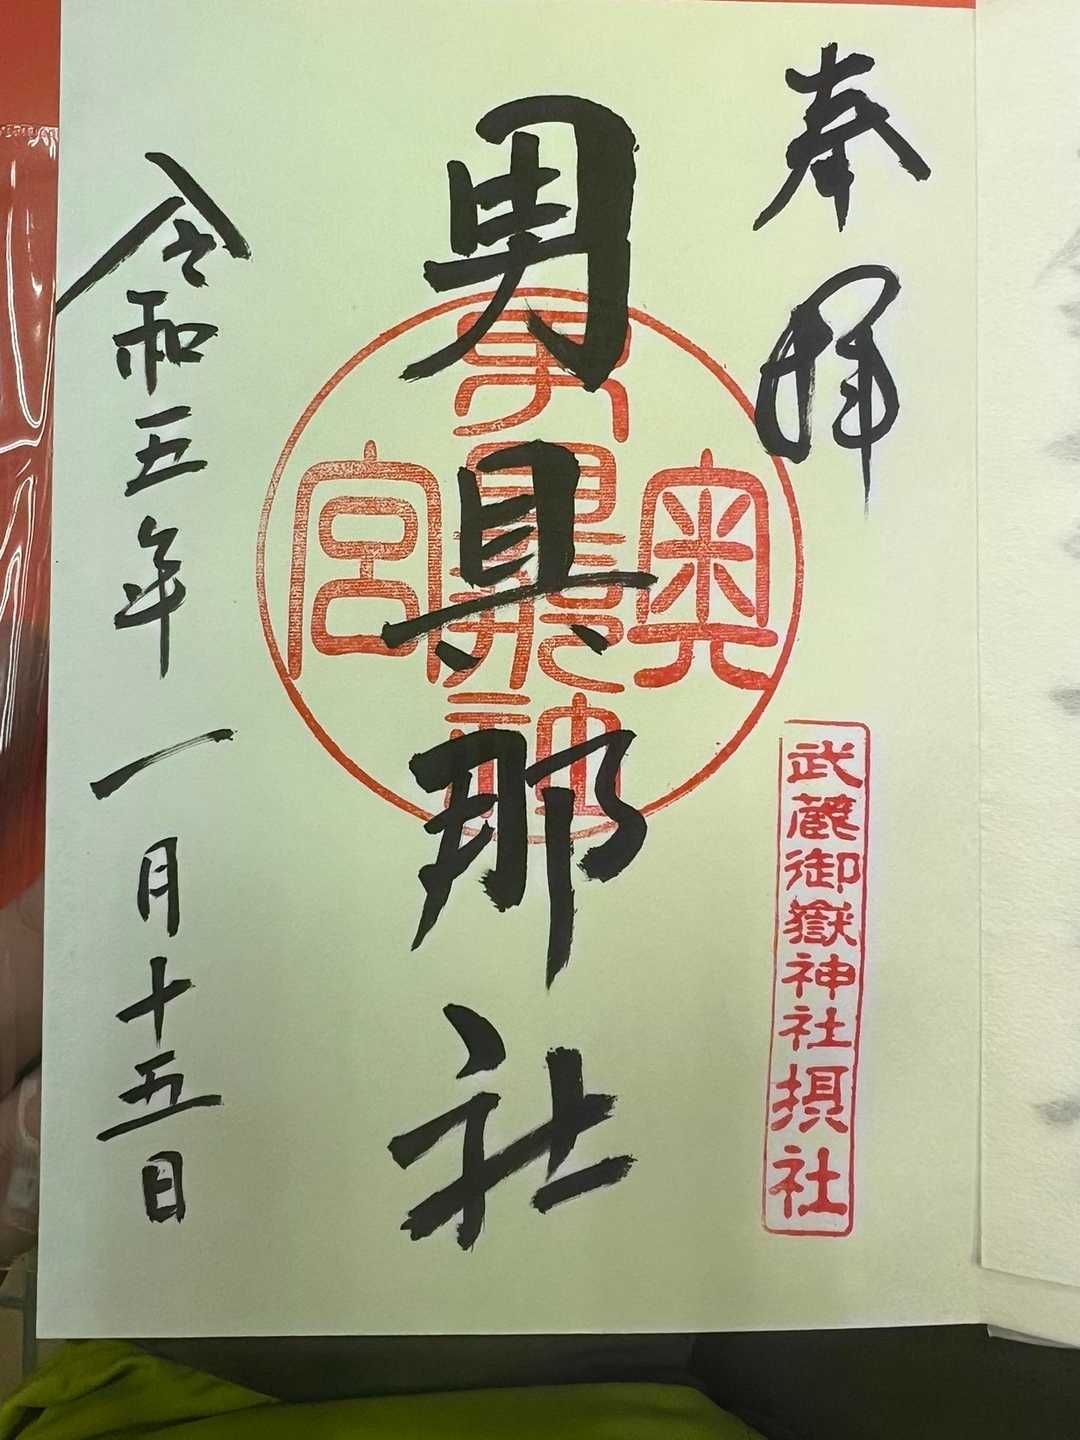 奉拝
武蔵御嶽神社摂社
男具那社
奥
宮
令和五年一月十五日